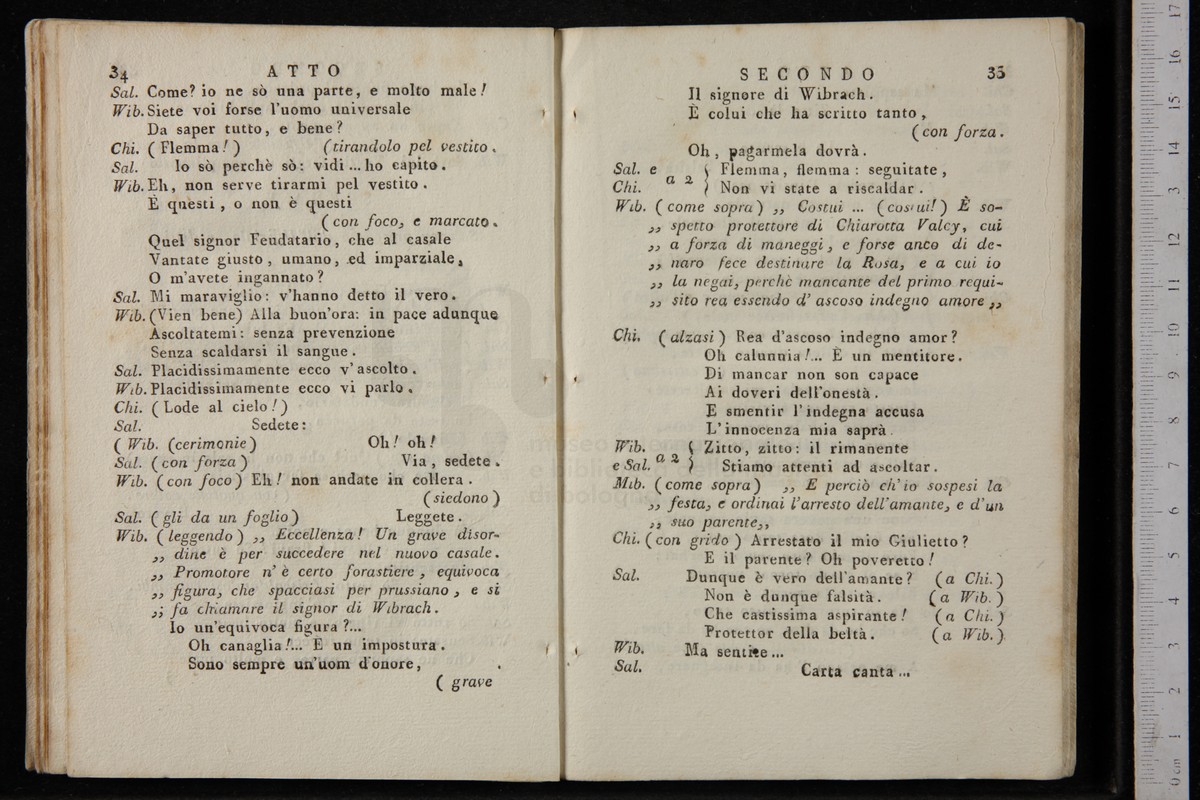 34
ATTO
Sal. Come? io ne sò una parte, e molto male!
Wib. Siete voi forse l'uomo universale
Da saper tutto, e bene?
Chi. ( Flemma! ) (tirandolo pel vestito.
Sal. Io sò perchè sò: vidi ... ho capito.
Wib. Eh, non serve tirarmi pel vestito.
È questi, o non è questi
( con foco, e marcato.
Quel signor Feudatario, che al casale
Vantate giusto, umano, ed imparziale,
O m'avete ingannato?
Sal. Mi maraviglio: v'hanno detto il vero.
Wib. (Vien bene) Alla buon'ora: in pace adunque
Ascoltatemi: senza prevenzione
Senza scaldarsi il sangue.
Sal. Placidissimamente ecco v'ascolto.
Wib. Placidissimamente ecco vi parlo.
Chi. ( Lode al cielo! )
Sal. Sedete:
( Wib. (cerimonie) Oh! oh!
Sal. ( con forza ) Via, sedete.
Wib. ( con foco ) Eh! non andate in collera.
( siedono )
Sal. ( gli da un foglio ) Leggete.
Wib. ( leggendo ) ,, Eccellenza! Un grave disor-
,, dine è per succedere nel nuovo casale.
,, Promotore n'è certo forastiere, equivoca
,, figura, che spacciasi per prussiano, e si
,, fa chiamare il signor di Wibrach.
Io un'equivoca figura?...
Oh canaglia!... E un impostura.
Sono sempre un'uom d'onore,
( grave
SECONDO
35
Il signore di Wibrach.
È colui che ha scritto tanto,
( con forza.
Oh, pagarmela dovrà.
Sal. e Chi. a 2 { Flemma, flemma: seguitate,
Non vi state a riscaldar.
Wib. ( come sopra ) ,, Costui ... ( costui! ) È so-
,, spetto protettore di Chiarotta Valcy, cui
,, a forza di maneggi, e forse anco di de-
,, naro fece destinare la Rosa, e a cui io
,, la negai, perchè mancante del primo requi-
,, sito rea essendo d' ascoso indegno amore ,,
Chi. ( alzasi ) Rea d'ascoso indegno amor?
Oh calunnia!... È un mentitore.
Di mancar non son capace
Ai doveri dell'onestà.
E smentir l'indegna accusa
L'innocenza mia saprà.
Wib. e Sal. a 2 { Zitto, zitto: il rimanente
Stiamo attenti ad ascoltar.
Mib. ( come sopra ) ,, E perciò ch'io sospesi la
,, festa, e ordinai l'arresto dell'amante, e d'un
,, suo parente,,
Chi. ( con grido ) Arrestato il mio Giulietto?
E il parente? Oh poveretto!
Sal. Dunque è vero dell'amante? ( a Chi. )
Non è dunque falsità. ( a Wib. )
Che castissima aspirante! ( a Chi. )
Protettor della beltà. ( a Wib. )
Wib. Ma sentite ...
Sal. Carta canta ...